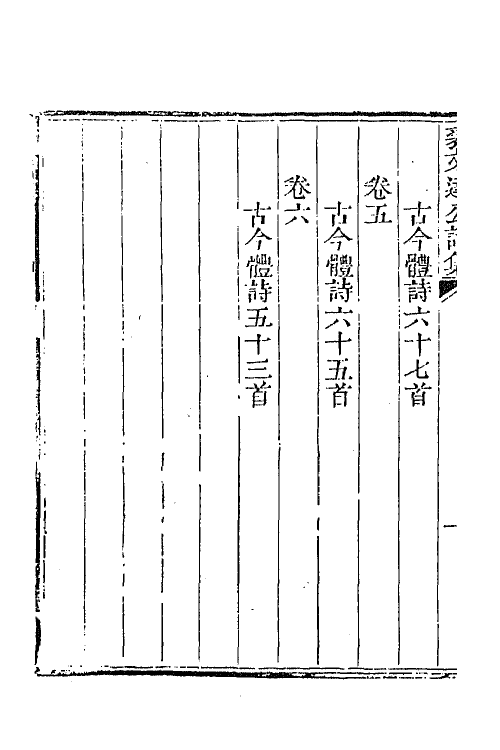 古今體詩六十七首
卷五
古今體詩六十五首
卷六
古今體詩五十三首